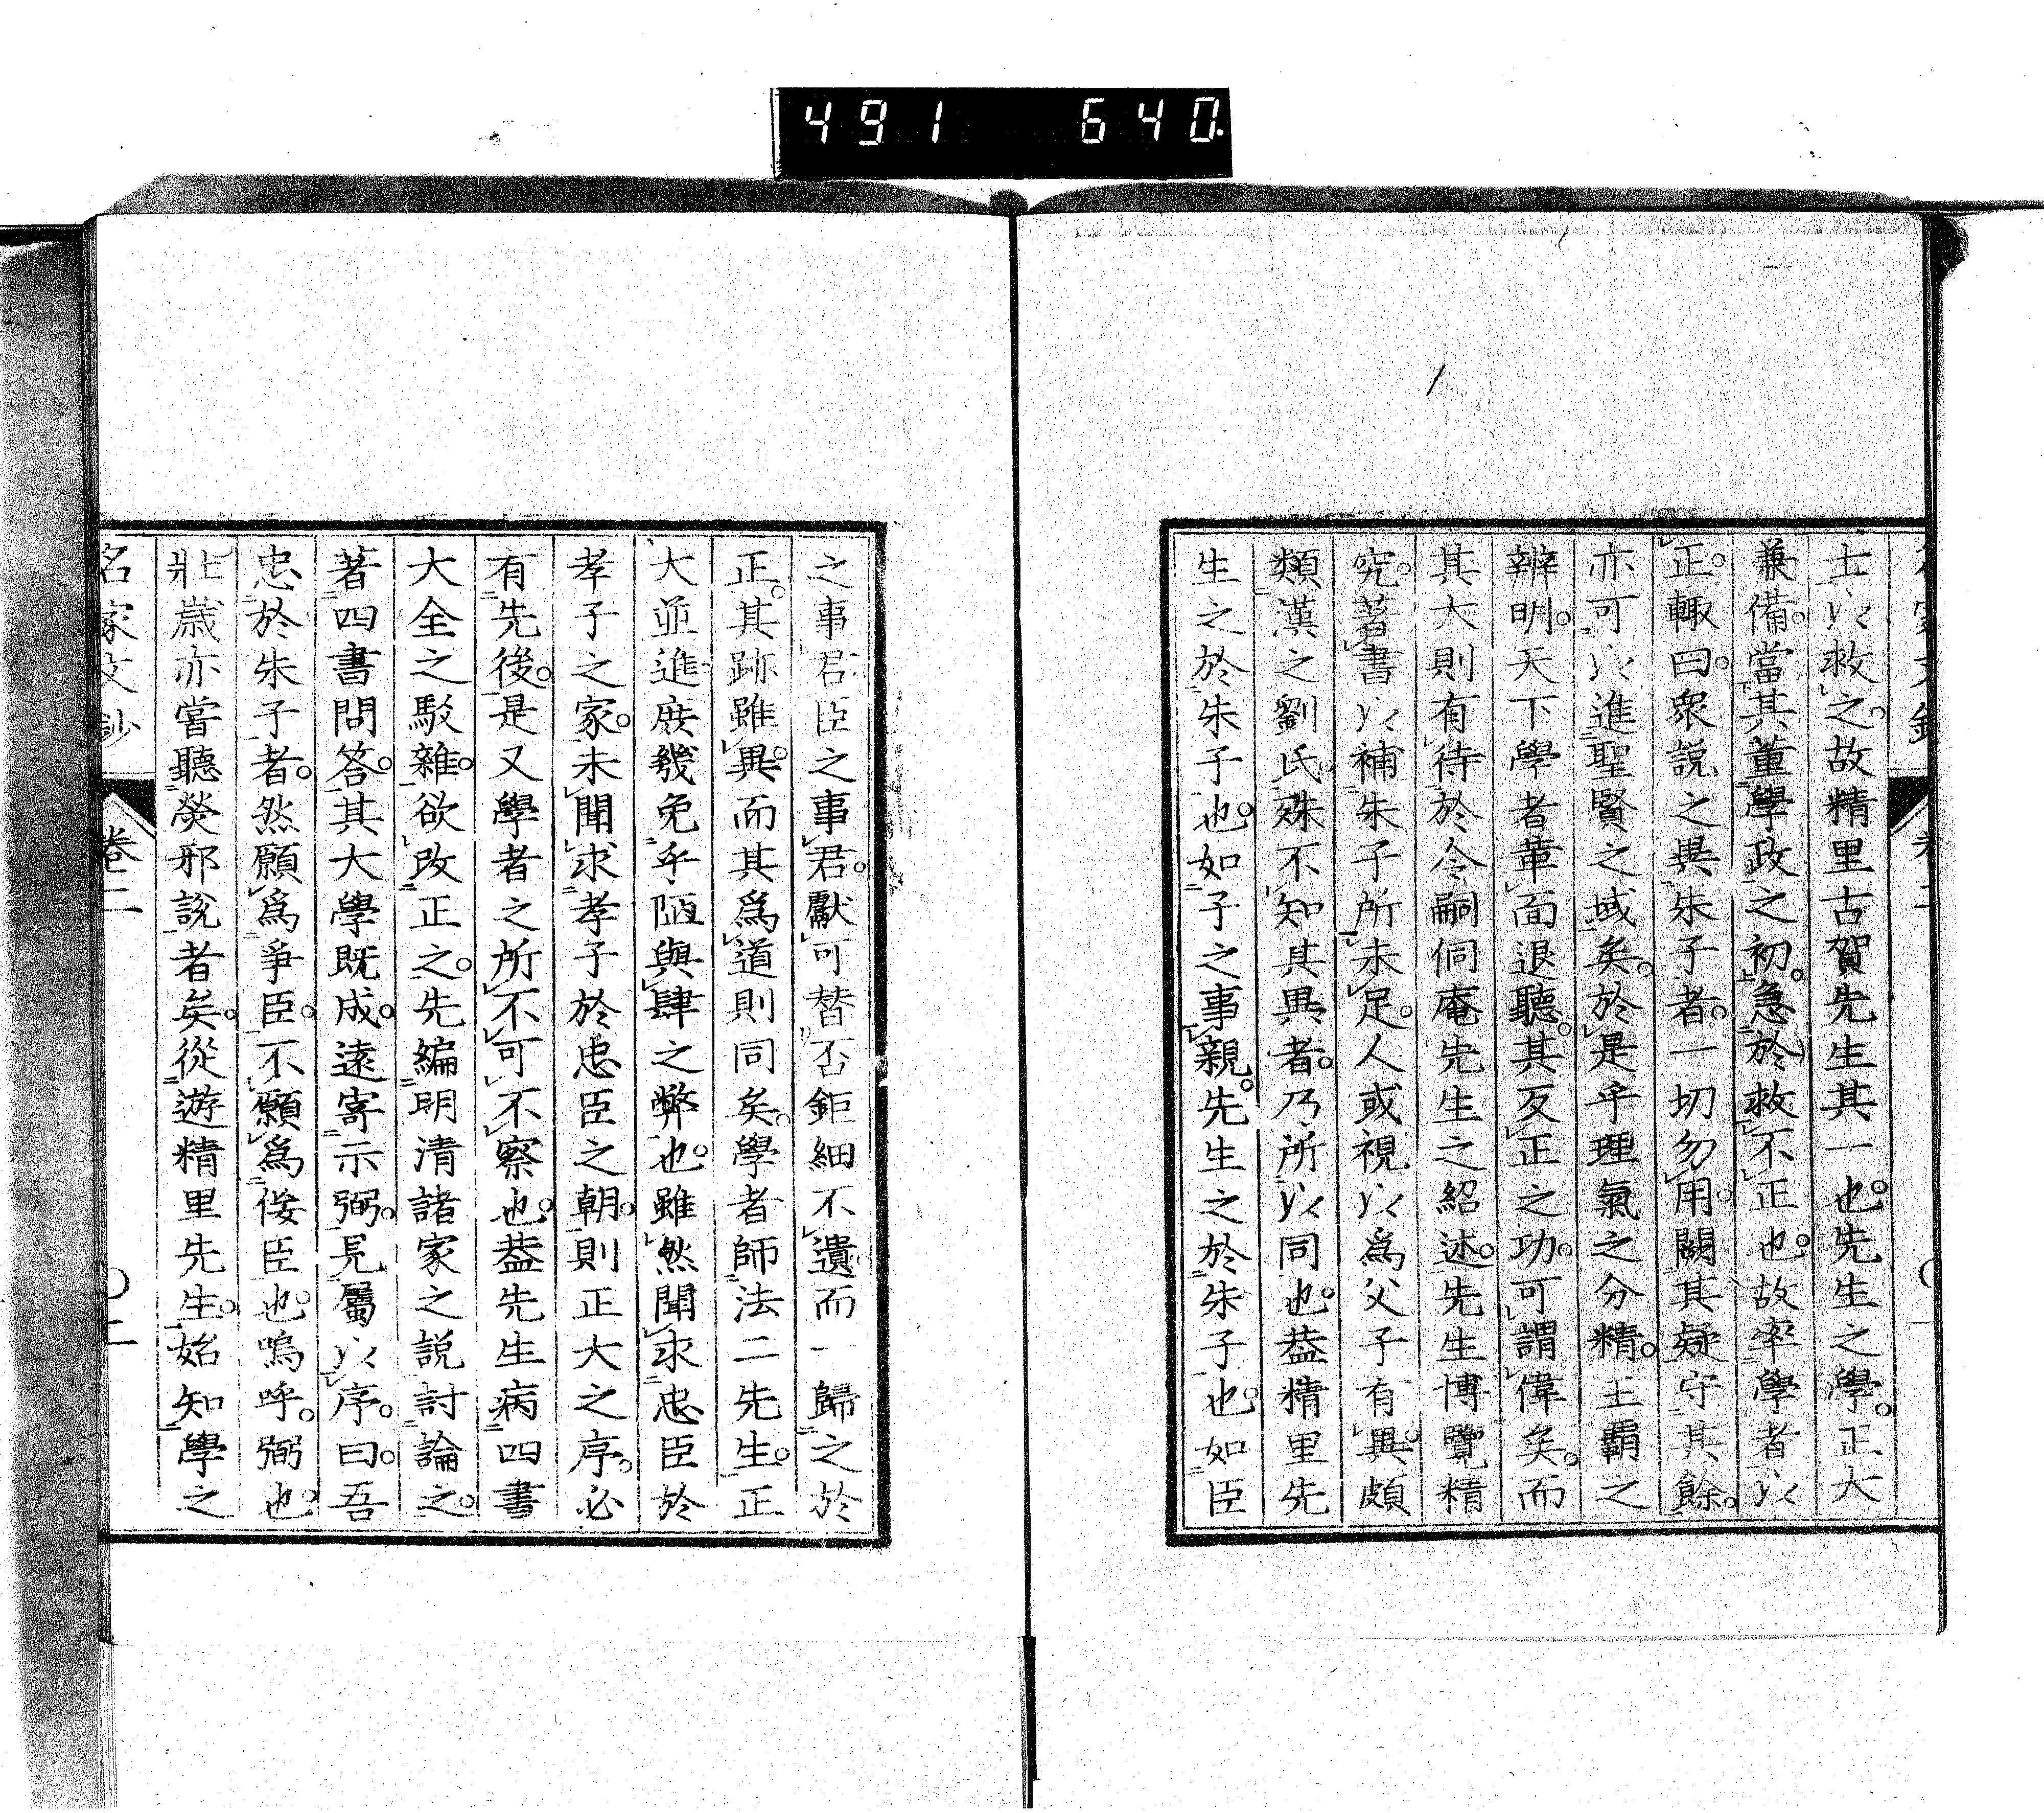 491 640.
士以救之。故精里古賀先生其一也。先生之學。正大
兼備。當其董學政之初。急於救不正也。故率學者以
正。輙曰。衆説之異朱子者。一切勿用。闕其疑守其餘。
亦可以進聖賢之域矣。於是乎理氣之分精。王霸之
辨明。天下學者革面退聽。其反正之功。可謂偉矣。而
其大則有待於令嗣侗庵先生之紹述。先生博覽精
究。著書以補朱子所未足。人或視以爲父子有異。頗
類漢之劉氏。殊不知其異者。乃所以同也。蓋精里先
生之於朱子也。如子之事親。先生之於朱子也。如臣
之事君。臣之事君。獻可替否鉅細不遺而一歸之於
正。其跡雖異。而其爲道則同矣。學者師法二先生。正
大並進庶幾免乎陋與肆之弊也。雖然聞求忠臣於
孝子之家。未聞求孝子於忠臣之朝。則正大之序。必
有先後。是又學者之所不可不察也。蓋先生病四書
大全之駁雜。欲改正之。先編明清諸家之説討論之。
著四書問答。其大學既成。遠寄示弼。見屬以序。曰。吾
忠於朱子者。然願爲爭臣。不願爲佞臣也。嗚呼。弼也。
壯歳亦嘗聽熒邪說者矣。從遊精里先生。始知學之
名家文鈔 卷二 〇二